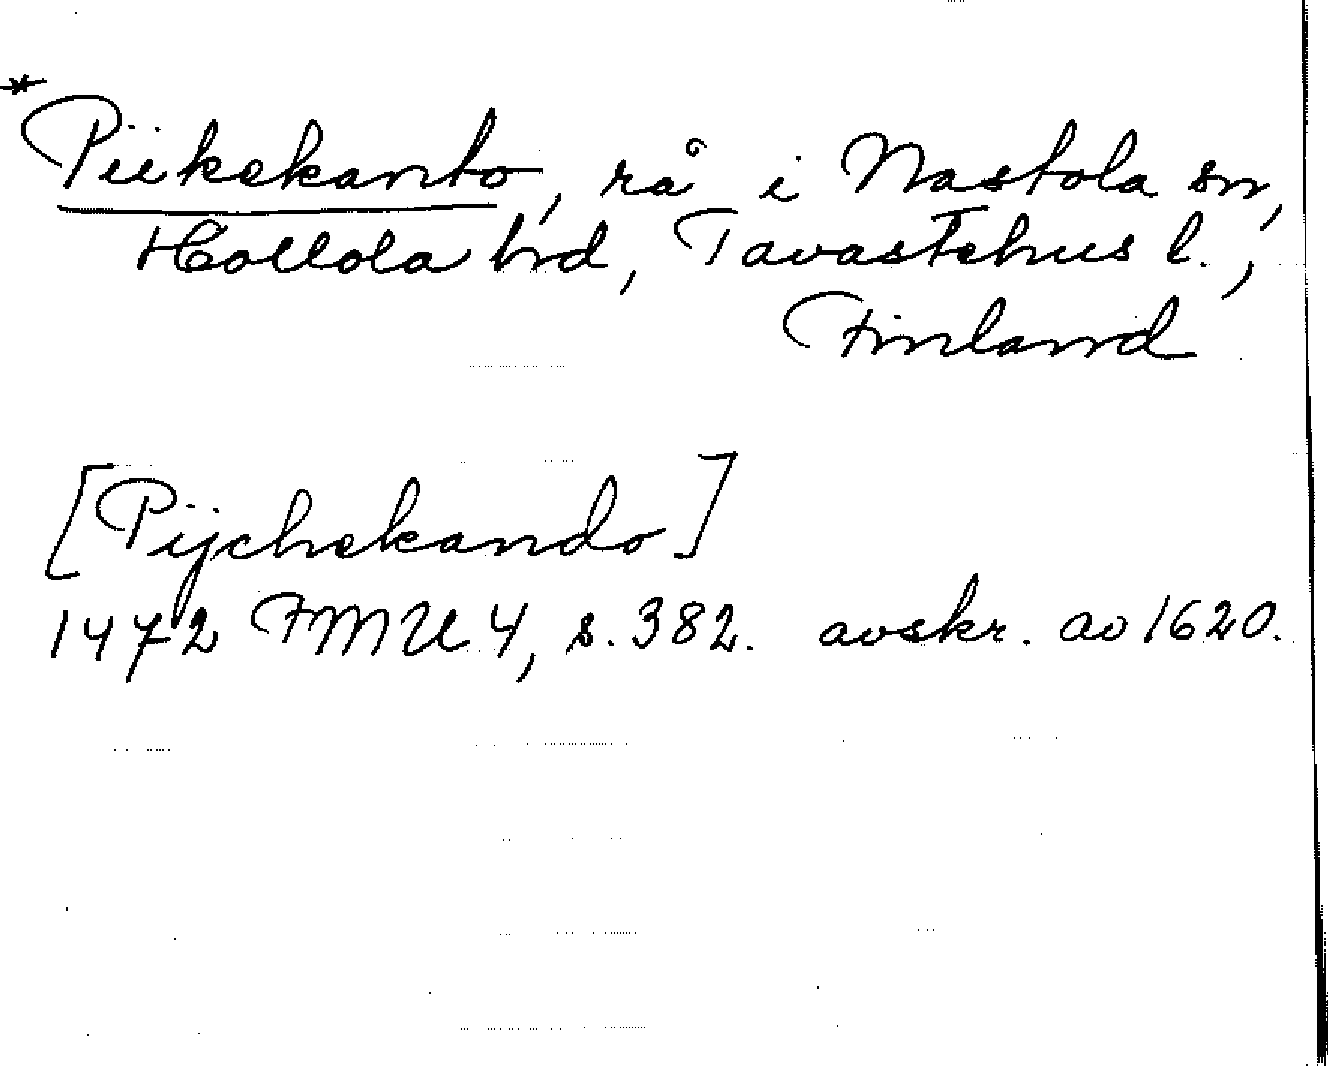 *Piikekanto, rå i Nastola sn,
Hollola hrd, Tavastehus l.,
Finland
[Pijchekando]
1472 FMU 4, s. 382. avskr. av 1620.